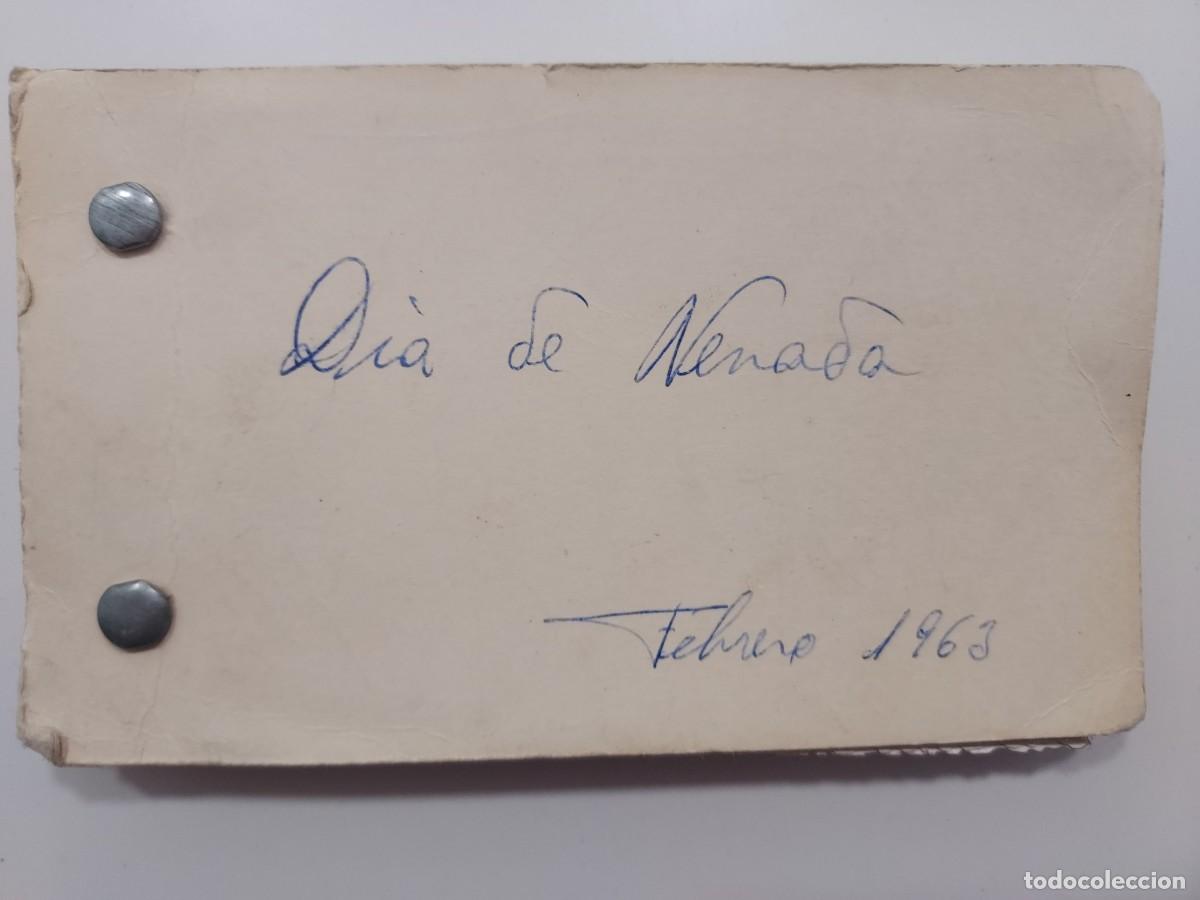 Dia de Nevada
Febrero 1963
todocoleccion